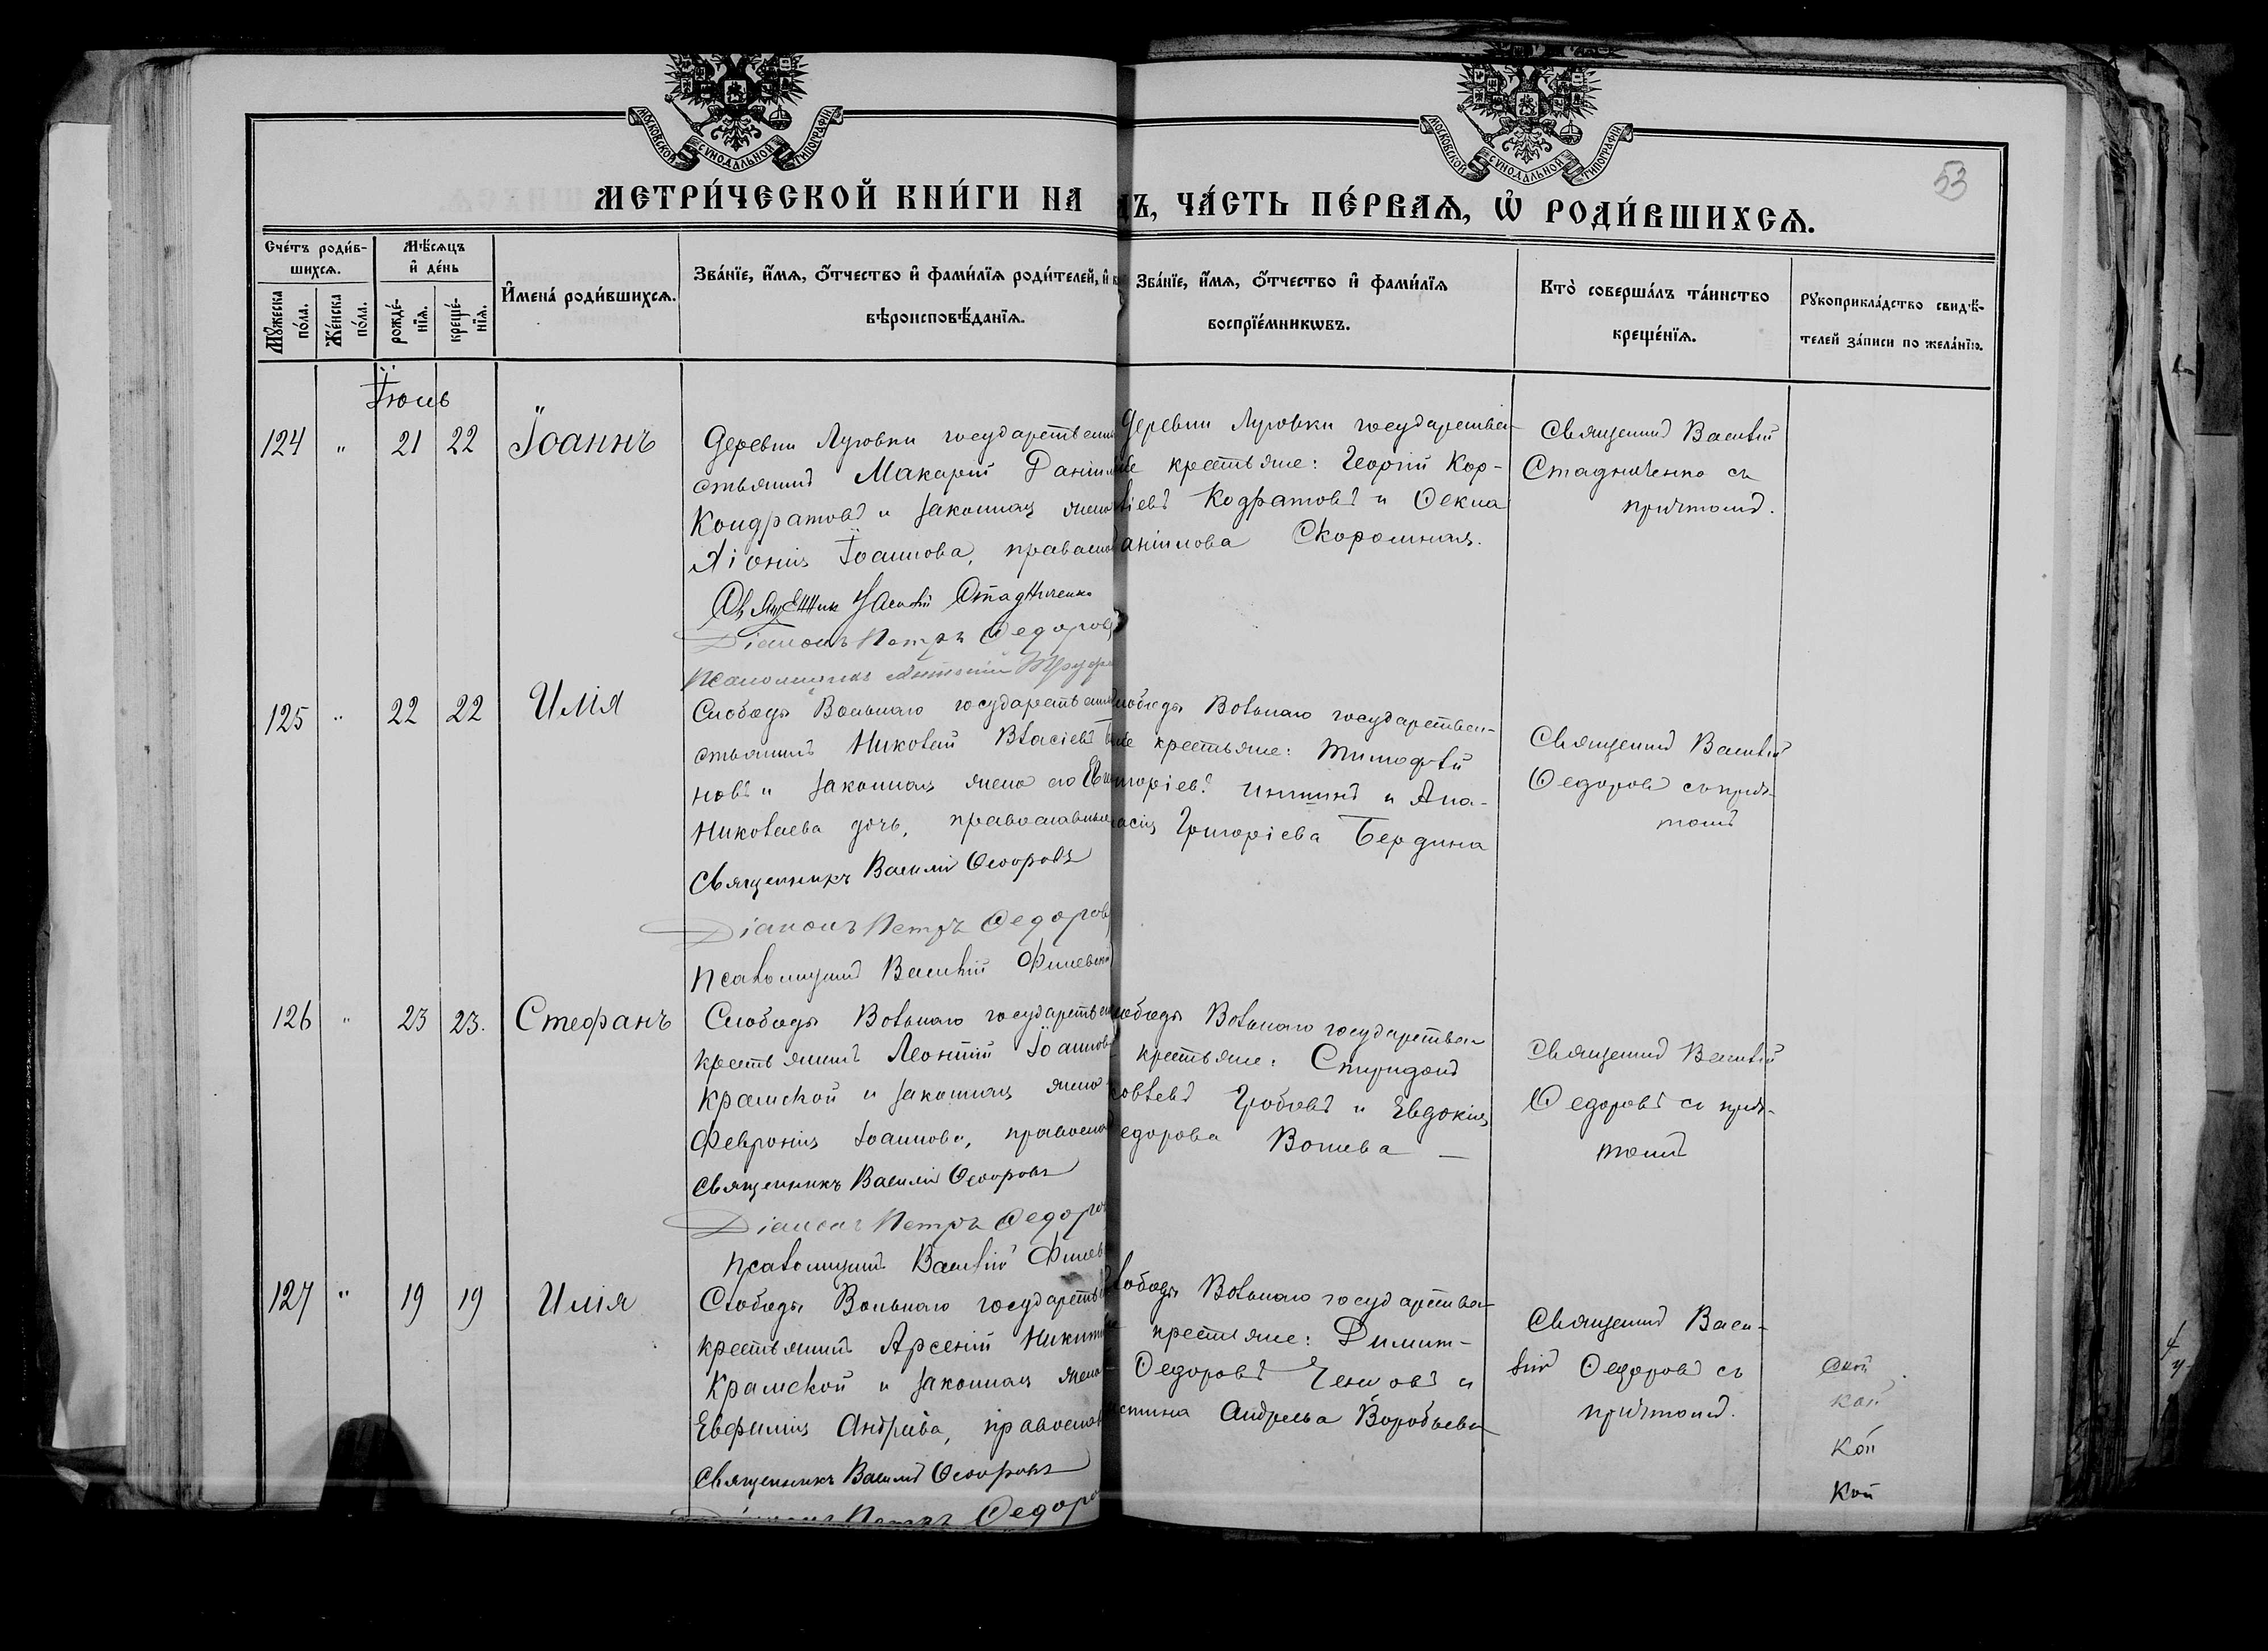 МОСКОВСКОЙ СѴНОДАЛЬНОЙ ТИПОГРАФІИ
МОСКОВСКОЙ СѴНОДАЛЬНОЙ ТИПОГРАФІИ
53
МЕТРИ́ЧЕСКОЙ КНИ́ГИ НА
Ъ, ЧА́СТЬ ПЕ́РВАѦ, Ѡ҆ РОДИ́ВШИХСѦ.
Сче́тъ роди́в-
шихсѧ.
Мѣ́сѧцъ
и҆ де́нь
Мꙋ́жеска
по́ла.
Же́нска
по́ла.
рожде́-
нїѧ.
креще́-
нїѧ.
И҆мена̀ роди́вшихсѧ.
Зва́нїе, и҆́мѧ, ѻ҆́тчество и҆ фами́лїѧ роди́телей, и҆
вѣроисповѣ́данїѧ.
Зва́нїе, и҆́мѧ, ѻ҆́тчество и҆ фами́лїѧ
воспрїе́мникѡвъ.
Кто̀ соверша́лъ та́инство
креще́нїѧ.
Рꙋкоприкла́дство свидѣ́-
телей за́писи по жела́нїю.
Іюль
124 " 21 22 Іоаннъ
Деревни Луговки государствен
стьянинъ Макарій Даніил
Кондратовъ и законная жена
Хіонія Іоаннова, православ
Священник Василій Стадниченко
Діаконъ Петръ Федоровъ
Псаломщикъ
Деревни Луговки государствен-
ые крестьяне: Георгій Кор-
ніевъ Кодратовъ и Фекла
аніилова Скоромная.
Священникъ Василій
Стадниченко съ
причтомъ.
125 " 22 22 Илія
Слободы Вольнаго государствен
стьянинъ Николай Власіевъ
новъ и законная жена его
Николаева дочь, православные
Священникъ Василій Федоровъ
Діаконъ Петръ Федоров
Псаломщикъ Василій
лободы Вольнаго государствен-
ые крестьяне: Тимофей
игоріевъ и Ана-
тасія Григоріева Бердина
Священникъ Василій
Федоровъ съ прич-
томъ
126 " 23 23. Стефанъ
Слободы Вольнаго государствен
крестьянинъ Леонтій Іоаннов
Крамской и законная жена
Феврониія Іоаннова, правосла
Священникъ Василій Федоровъ
Діаконъ Петръ Федоро
Псаломщикъ Василій
лободы Вольнаго государствен
крестьяне: Спиридонъ
ковлевъ Грибовъ и Евдокія
едорова
Священникъ Василій
Федоровъ съ прич-
томъ
127 " 19 19 Илія
Слободы Вольнаго государств
крестьянинъ Арсеній Никит
Крамской и законная жена
Евфимія Андреева, православ
Священникъ Василій Федоровъ
Діаконъ Петръ Федоро
лободы Вольнаго государствен
крестьяне: Димит-
Федоровъ и
истина Андреева Воробьева
Священникъ Васи-
лій Федоровъ съ
причтомъ.
ской
кой
кой
кой